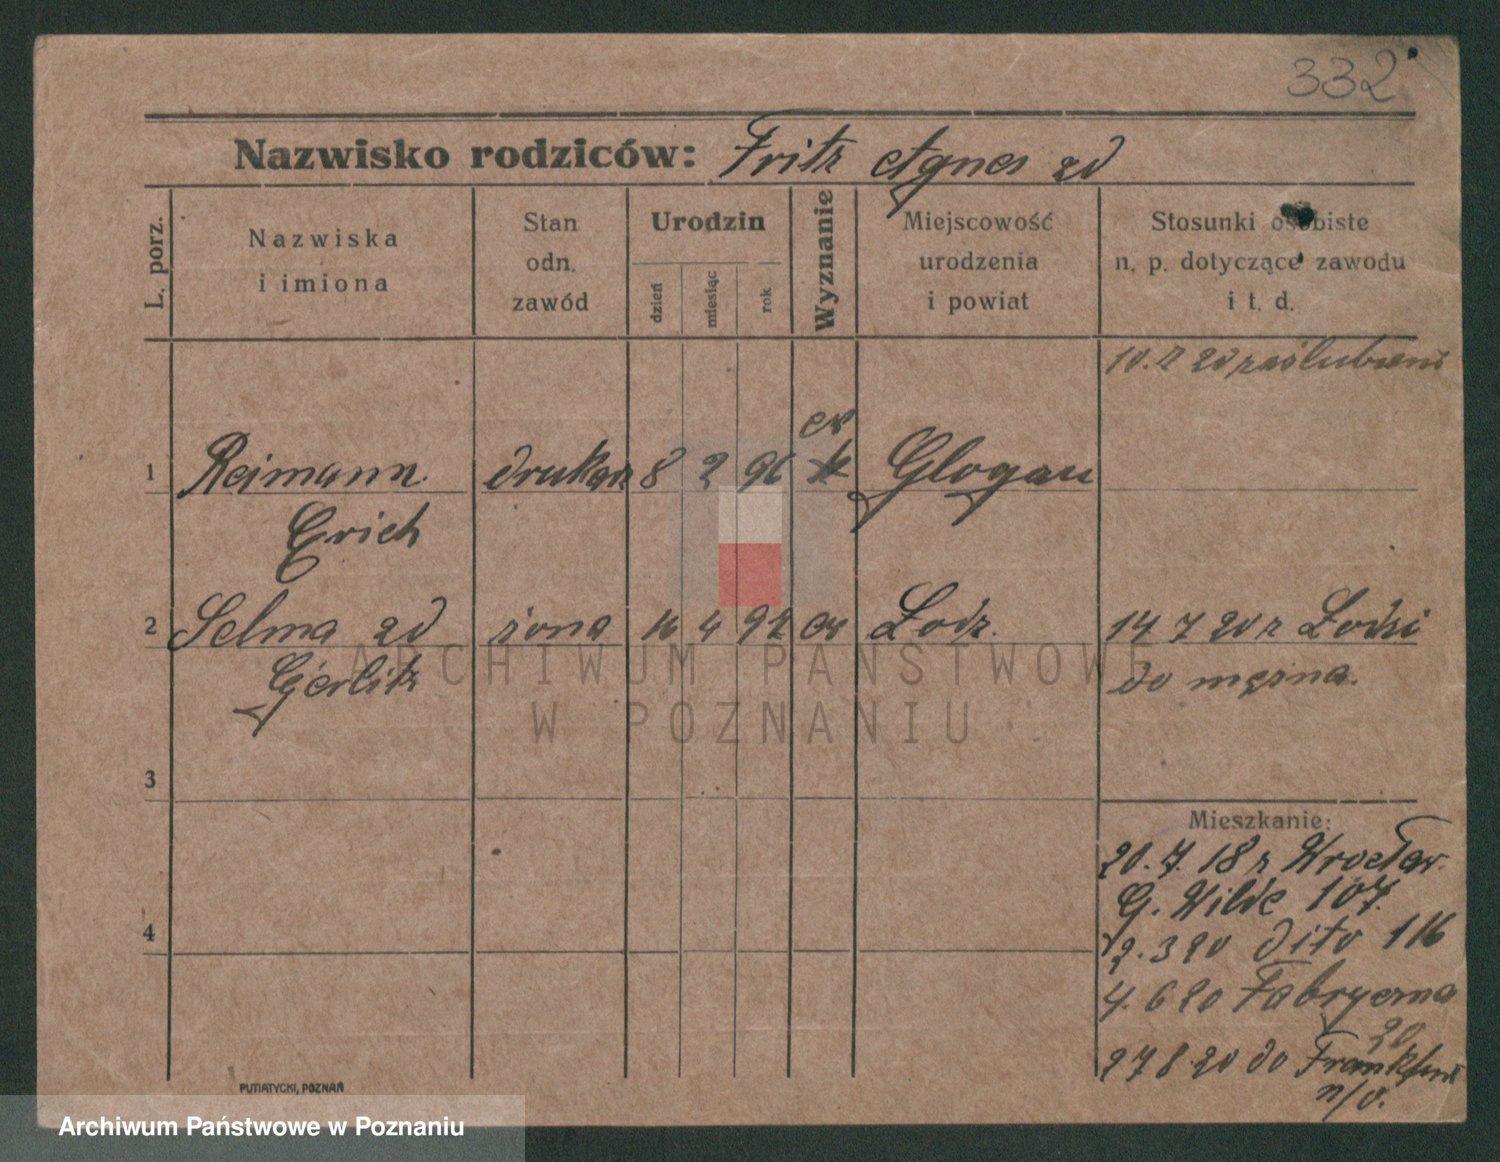 332
Nazwisko rodziców: Fritz Agnes zd
L. porz.
Nazwiska i imiona
Stan odn. zawód
Urodzin
dzień
miesiąc
rok
Wyznanie
Miejscowość urodzenia i powiat
Stosunki osobiste n. p. dotyczące zawodu i t. d.
10. 7 20 zaślubieni
ew
1 Reimann drukarz 8 2 96 Glogau
Erich
2 Selma zd żona 16 4 92 ew Lodz. 14 7 20 z Lodzi
Görlitz do męża.
3
Mieszkanie:
20. 7. 18 z Wrocław.
G. Wilde 107.
4
2. 3 20 dito 116
4. 6 20 Fabryczna
20
27 8 20 do Frankfurt
n/O.
PUTIATYCKI, POZNAŃ
ARCHIWUM PAŃSTWOWE
W POZNANIU
Archiwum Państwowe w Poznaniu